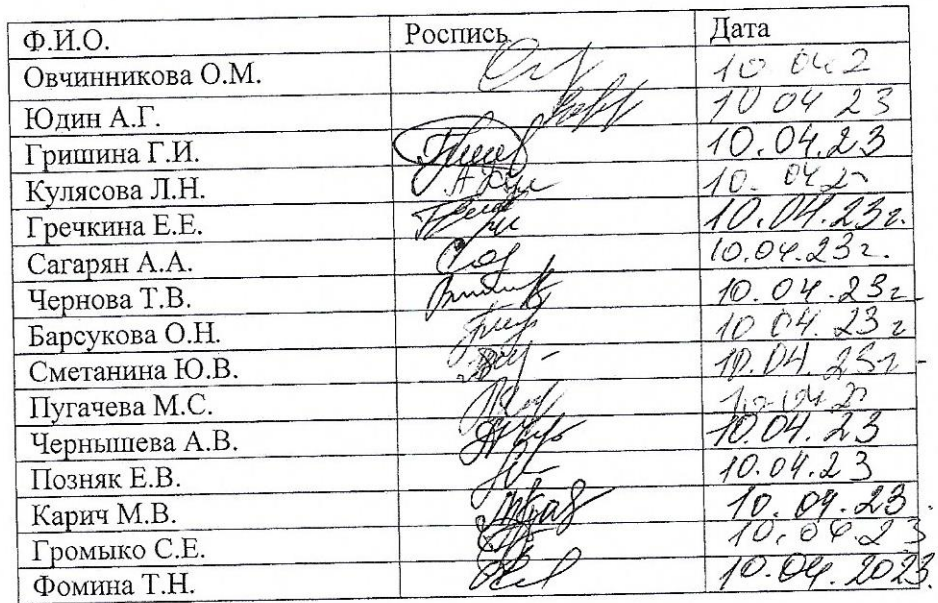 Ф.И.О. Роспись Дата
Овчинникова О.М. 10 04 2
Юдин А.Г. 10 04 23
Гришина Г.И. 10.04.23
Кулясова Л.Н. 10. 04 2
Гречкина Е.Е. 10.04.23г.
Сагарян А.А. 10.04.23г.
Чернова Т.В. 10.04.23г
Барсукова О.Н. 10 04. 23г
Сметанина Ю.В. 10.04.23г
Пугачева М.С. 10.04 2
Чернышева А.В. 10.04.23
Позняк Е.В. 10.04.23
Карич М.В. 10.04.23.
Громыко С.Е. 10.04.23
Фомина Т.Н. 10.04.2023.